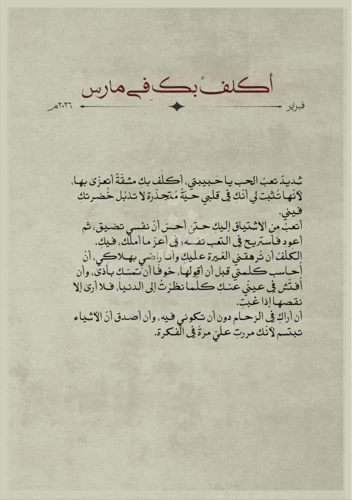 أكلفُ بكِ في مارس
فبراير ٢٠٢٦م
شديدٌ تعبُ الحب يا حبيبتي، أكلف بكِ مشقّةً أتعزّى بها،
لأنها تُثبت لي أنّك في قلبي حيّةٌ مُتجذّرة لا تذبُل خُضرتك
فيني.
أتعبُ من الاشتياق إليك حتى أحسّ أنّ نفسي تضيق، ثم
أعود فأستريح في التعب نفسه، في أعزّ ما أملك، فيك.
الكلفُ أن تُرهقني الغيرة عليكِ وأنا راضي بهلاكي، أن
أحاسب كلمتي قبل أن أقولها، خوفًا أن تمسّك بأذى، وأن
أفتّش في عيني عنك كلما نظرتُ إلى الدنيا، فلا أرى إلا
نقصها إذا غبتِ.
أن أراكِ في الزحام دون أن تكوني فيه، وأن أصدق أنّ الأشياء
تبتسم لأنك مررتِ عليّ مرةً في الفكرة.